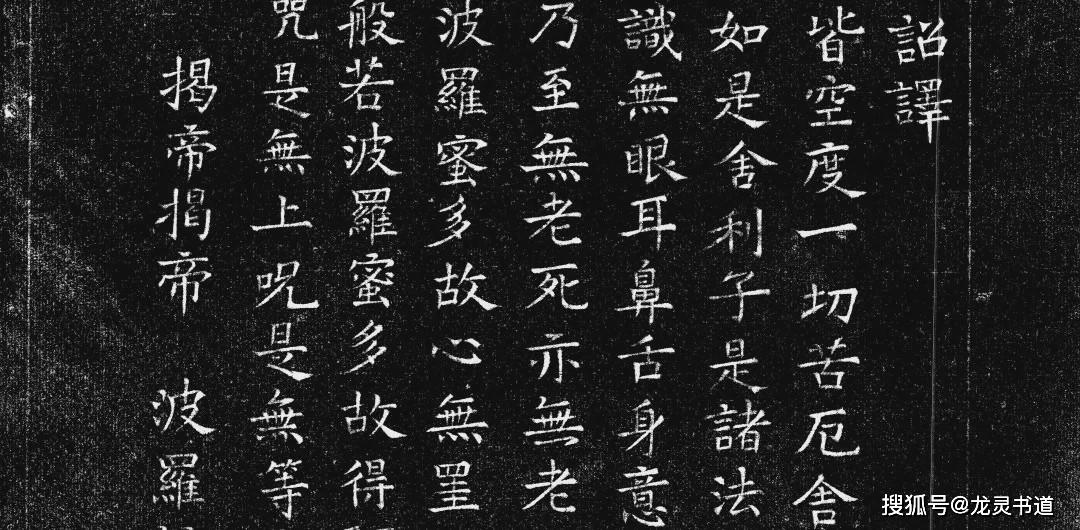 詔譯
皆空度一切苦厄舍
如是舍利子是諸法
識無眼耳鼻舌身意
乃至無老死亦無老
波羅蜜多故心無罣
般若波羅蜜多故得
咒是無上呪是無等
揭帝揭帝 波羅
搜狐号@龙灵书道